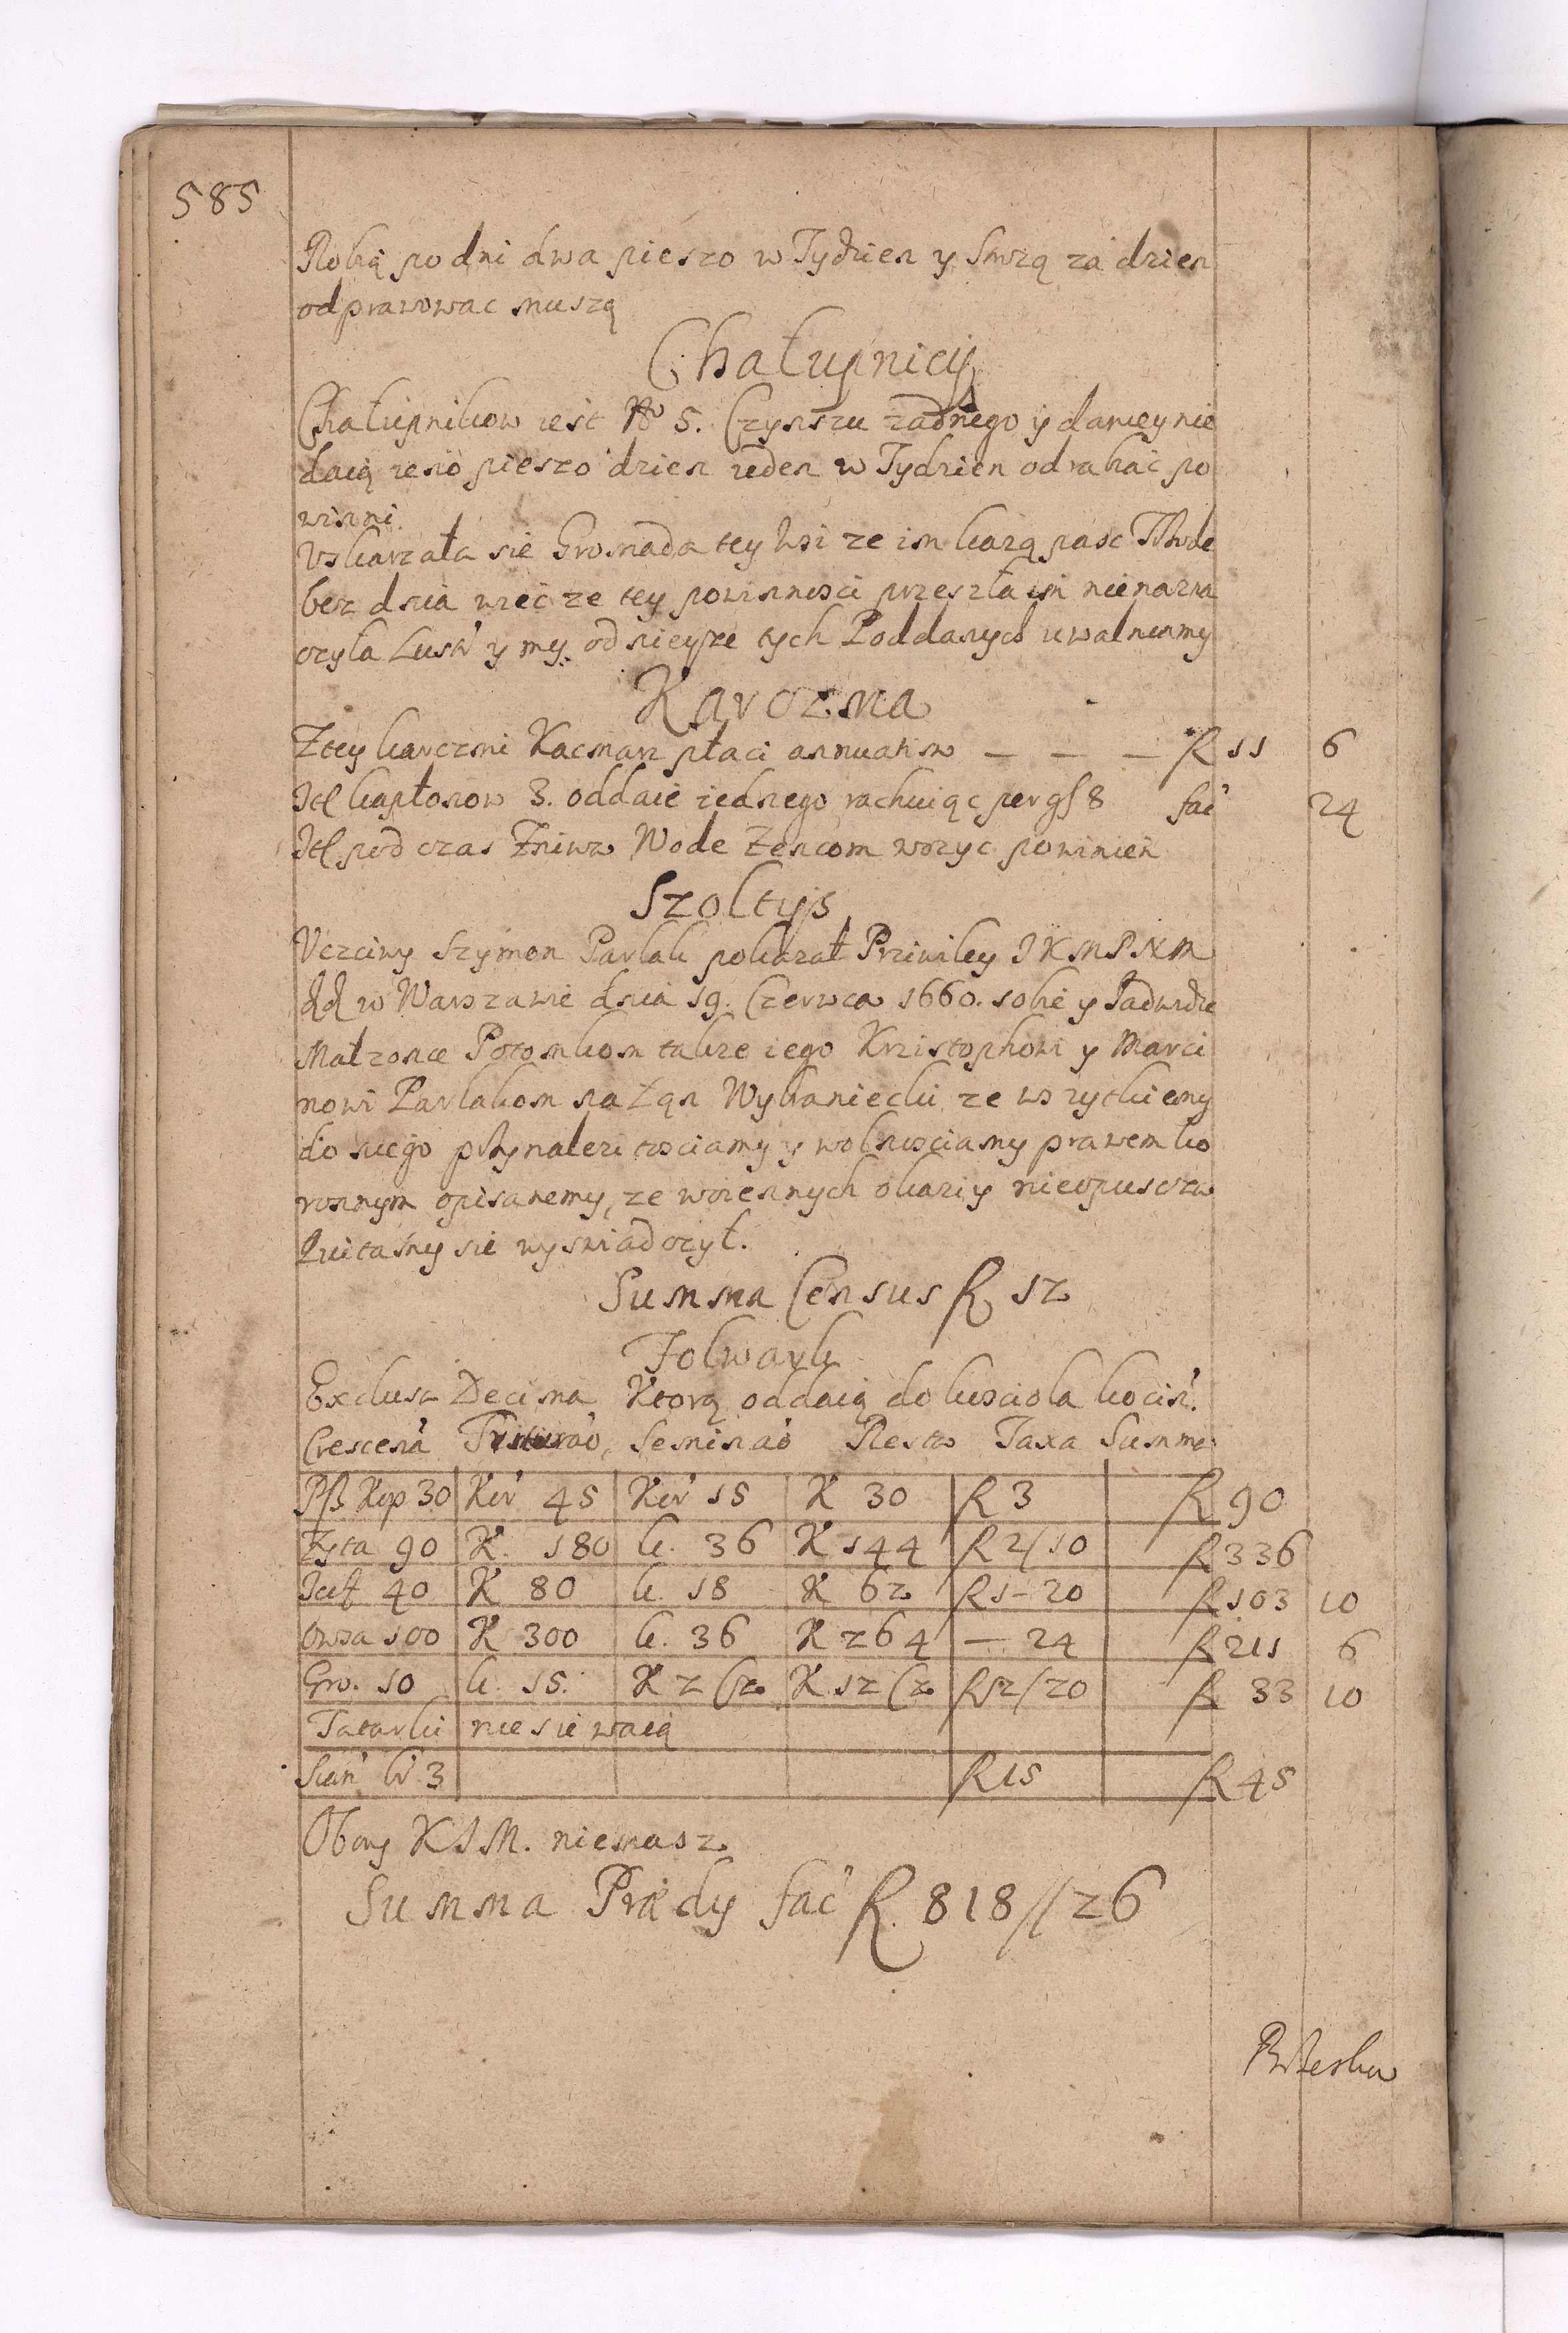 585
Robią po dni dwa pieszo w Tydzien y Strzą za dzien
odprawowac muszą
Chałupnicy
Chałupnikow iest No 5. Czynszu zadnego y daniey nie
daią ieno pieszo dzien ieden w Tydzien odrabiac po
winni.
Uskarzała sie Gromada tey Wsi ze im kazą pasc
bez dnia wiec ze tey powinnosci przeszła im nienazna
czyła Lustr y my od nieyze tych Poddanych uwalniamy
Karczma
Z tey karczmi Kacmarz płaci annuatim — — — R 11 6
Itt kapłonow 3. oddaie iednego rachuiąc per gs 8 fac 24
Itt pod czas Zniwa Wode Zencom wozyc powinien
Szoltys
Uczciwy Szymon Pavlak pokazał Priwiley J K M P N M
dd w Warszawie dnia 19. Czerwca 1660. sobie y Jadwidze
Małzonce Potomkom takze iego Krzistophowi y Marci
nowi Pavlakom na Łąn Wybraniecki ze wszytkiemy
do niego przynalezitosciamy y wolnosciamy prawem ko
ronnym opisanemy, ze woiennych okaziy nieopuscza
Quitamy sie wyswiadczył.
Summa Census R 12
Folwark
Exclusa Decima Ktorą oddaią do kosciola kocin.
Crescen Triturao, Seminao Resta Taxa Summa
Psz Kop 30 Kor 45 Kor 15 K 30 R 3 R 90
Zyta 90 K. 180 k. 36 K 144 R 2/10 R 336
Jecz 40 K 80 k. 18 K 62 R 1-20 R 103 10
Owsa 100 K 300 k. 36 K 264 — 24 R 211 6
Gro. 10 k. 15. K 2 (2 K 12 (2 R 2/20 R 33 10
Tatarki nie siewaią
Sian br 3 R 15 R 45
Obory K J M. niemasz
Summa Prædy fac R. 818 // 26